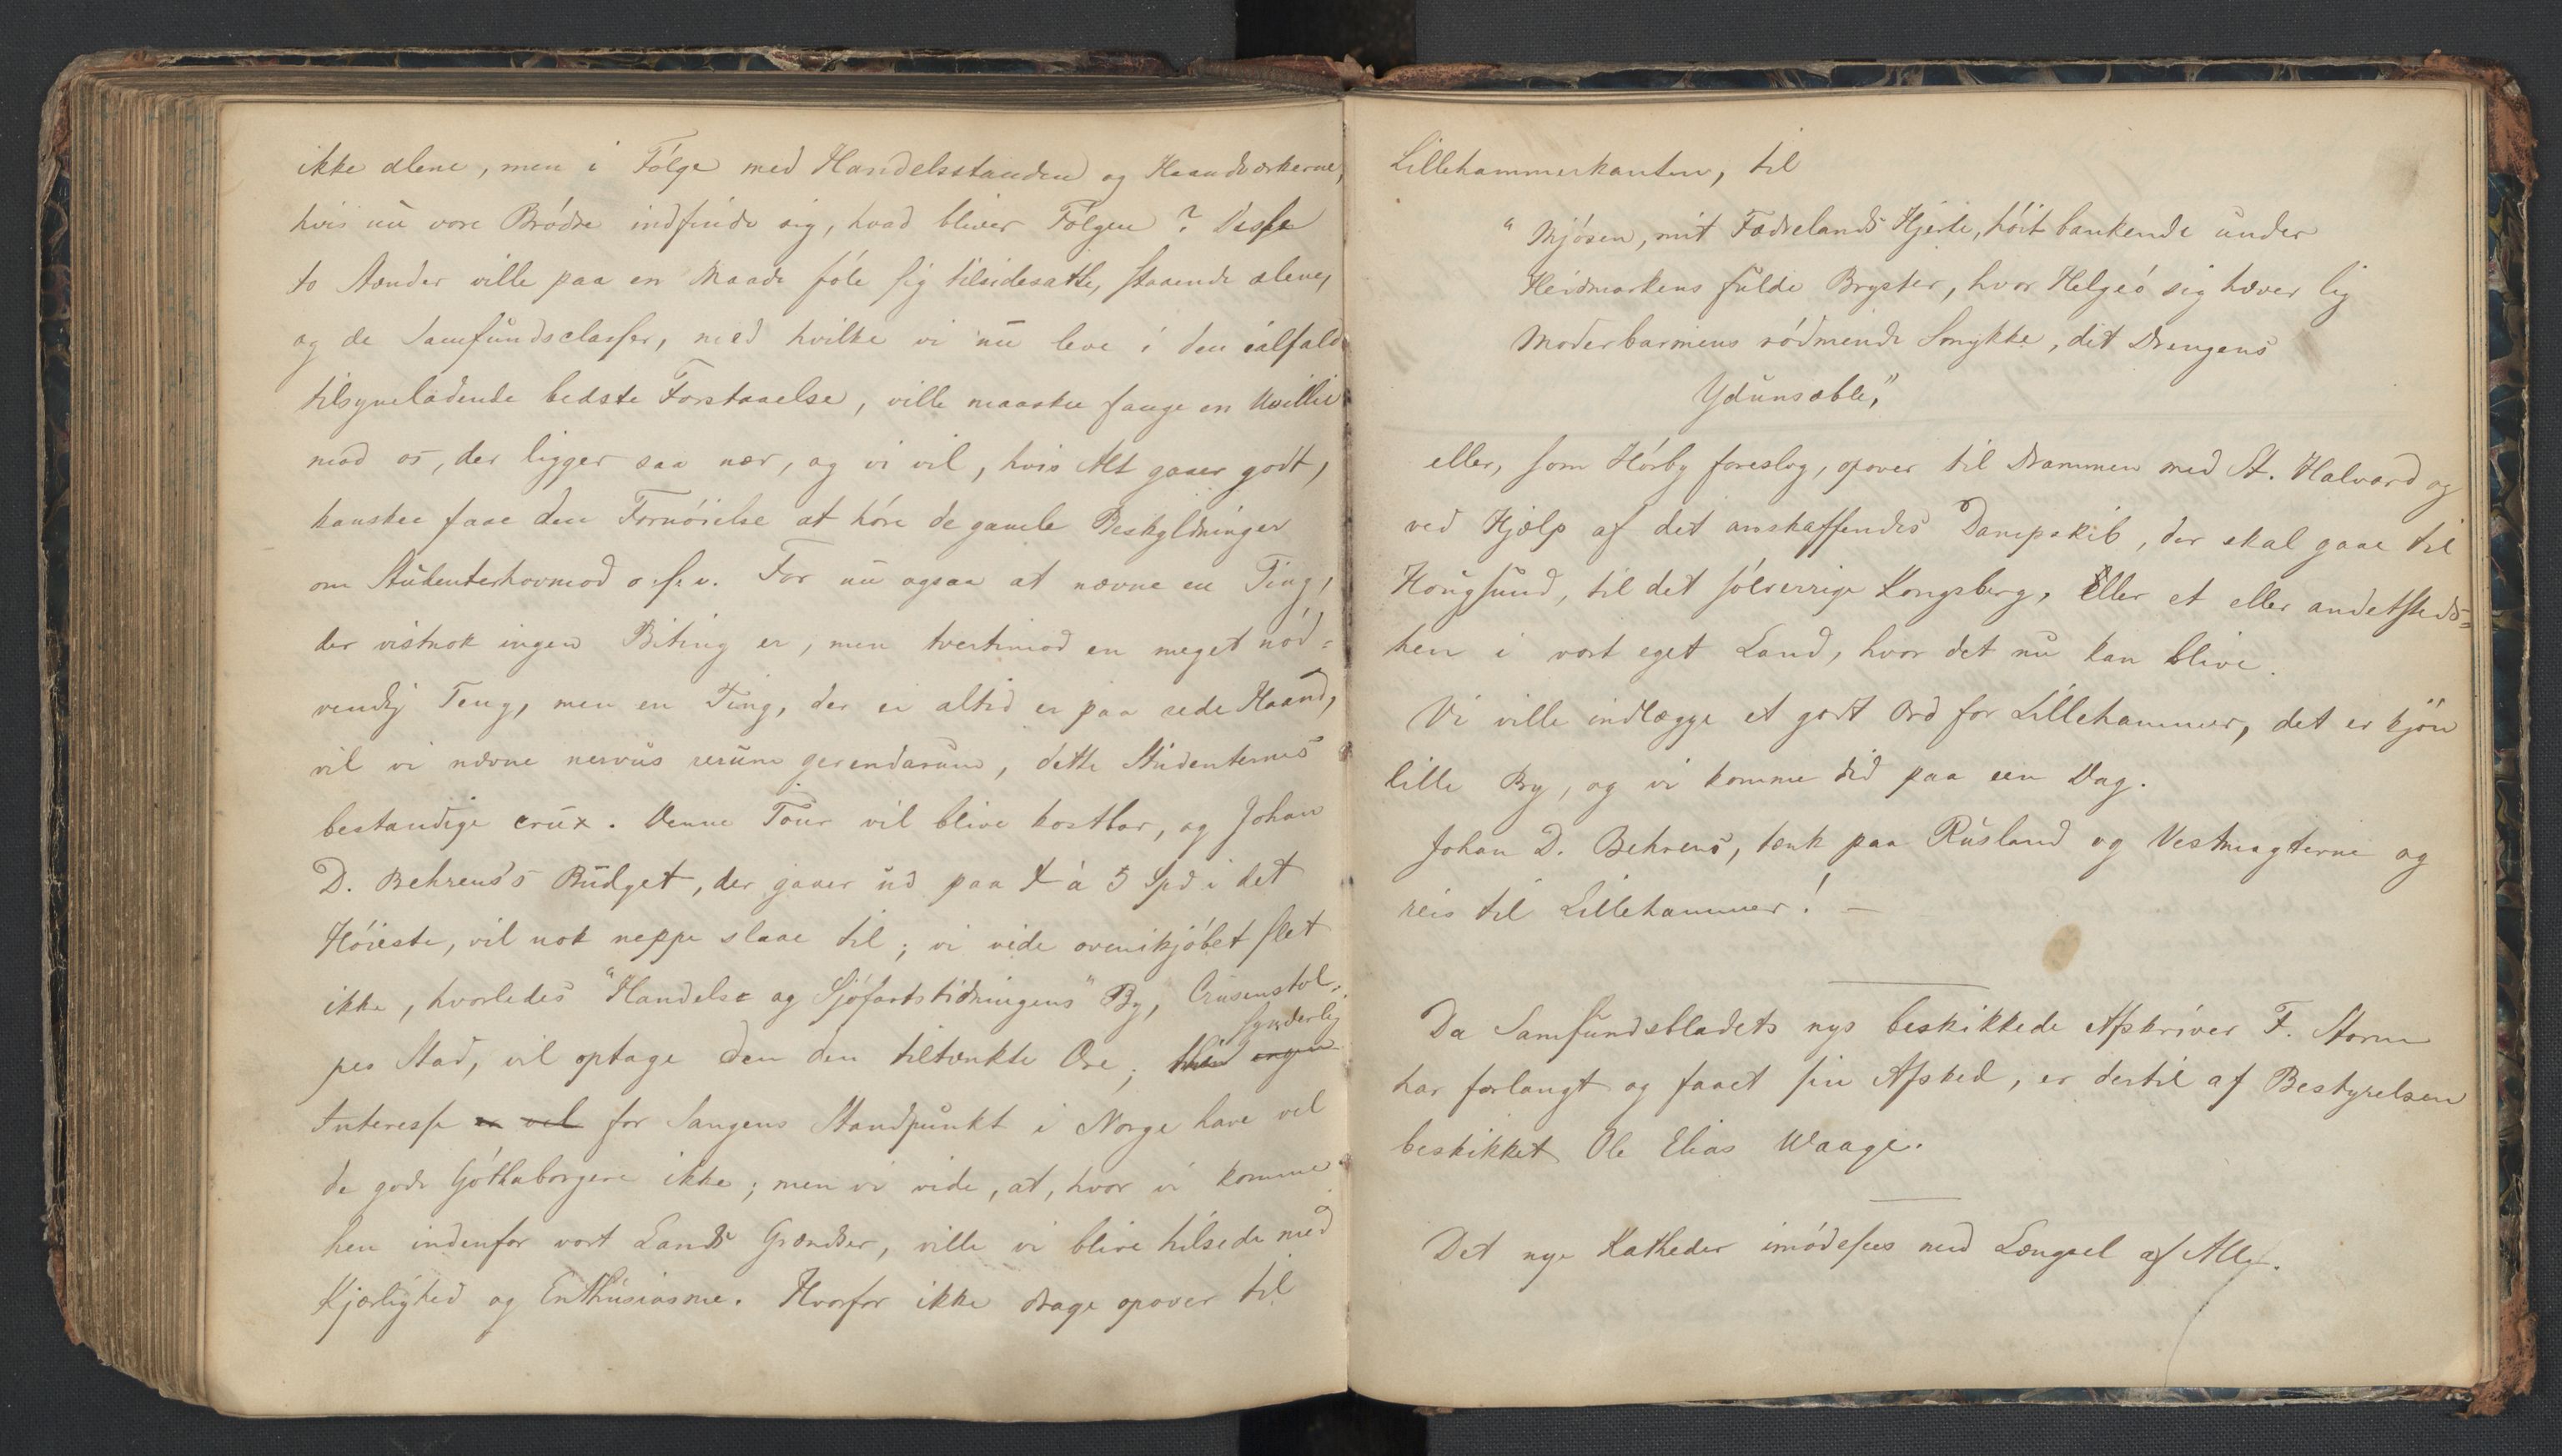 ikke alene, men i Følge med Handelsstanden og Haandværkerne,
hvis nu vore Brødre indfinde sig, hvad bliver Følgen? Disse
to Stænder ville paa en Maade føle sig tilsidesatte, staaende alene,
og de Samfundsclasser, med hvilke vi nu leve i den ialfald
tilsyneladende bedste Forstaaelse, ville maaskee fange en Uvillie
mod os, der ligger saa nær, og vi vil, hvis Alt gaaer godt,
kanskee faae den Fornøielse at høre de gamle Beskyldninger
om Studenterhovmod o.s.v. For nu ogsaa at nævne en Ting,
der vistnok ingen Biting er, men tvertimod en meget nød-
vendig Ting, men en Ting, der ei altid er paa rede Haand,
vil vi nævne nervus rerum gerendarum, dette Studenternes
bestandige crux. Denne Tour vil blive kostbar, og Johan
D. Behrens's Budget, der gaaer ud paa 4 à 5 Spd i det
Høieste, vil nok neppe slaae til; vi vide ovenikjøbet slet
ikke, hvorledes "Handels- og Sjöfartstidningens" By, Crusenstol-
pes Stad, vil optage den den tiltænkte Ære; synderlig
Interesse er vel for Sangens Standpunkt i Norge have vel
de gode Gøthaborgere ikke; men vi vide, at, hvor vi komme
hen indenfor vort Lands Grændser, ville vi blive hilsede med
Kjærlighed og Enthusiasme. Hvorfor ikke drage opover til
Lillehammerkanten, til
"Mjøsen, mit Fædrelands Hjerte, høit bankende under
Heidmarkens fulde Bryster, hvor Helgeø sig hæver lig
Moderbarmens rødmende Smykke, dit Drengens
Ydunsæble,"
eller, som Hørby foreslog, opover til Drammen med St. Halvard og
ved Hjælp af det anskaffendes Dampskib, der skal gaae til
Hougsund, til det sølverrige Kongsberg, eller et eller andetsteds-
hen i vort eget Land, hvor det nu kan blive.
Vi ville indlægge et godt Ord for Lillehammer, det er kjøn
lille By, og vi komme did paa een Dag.
Johan D. Behrens, tænk paa Rusland og Vestmagterne og
reis til Lillehammer! —
Da Samfundsbladets nys beskikkede Afskriver F. Storm
har forlangt og faaet sin Afsked, er dertil af Bestyrelsen
beskikket Ole Elias Waage.
Det nye Katheder imødesees med Længsel af Alle.